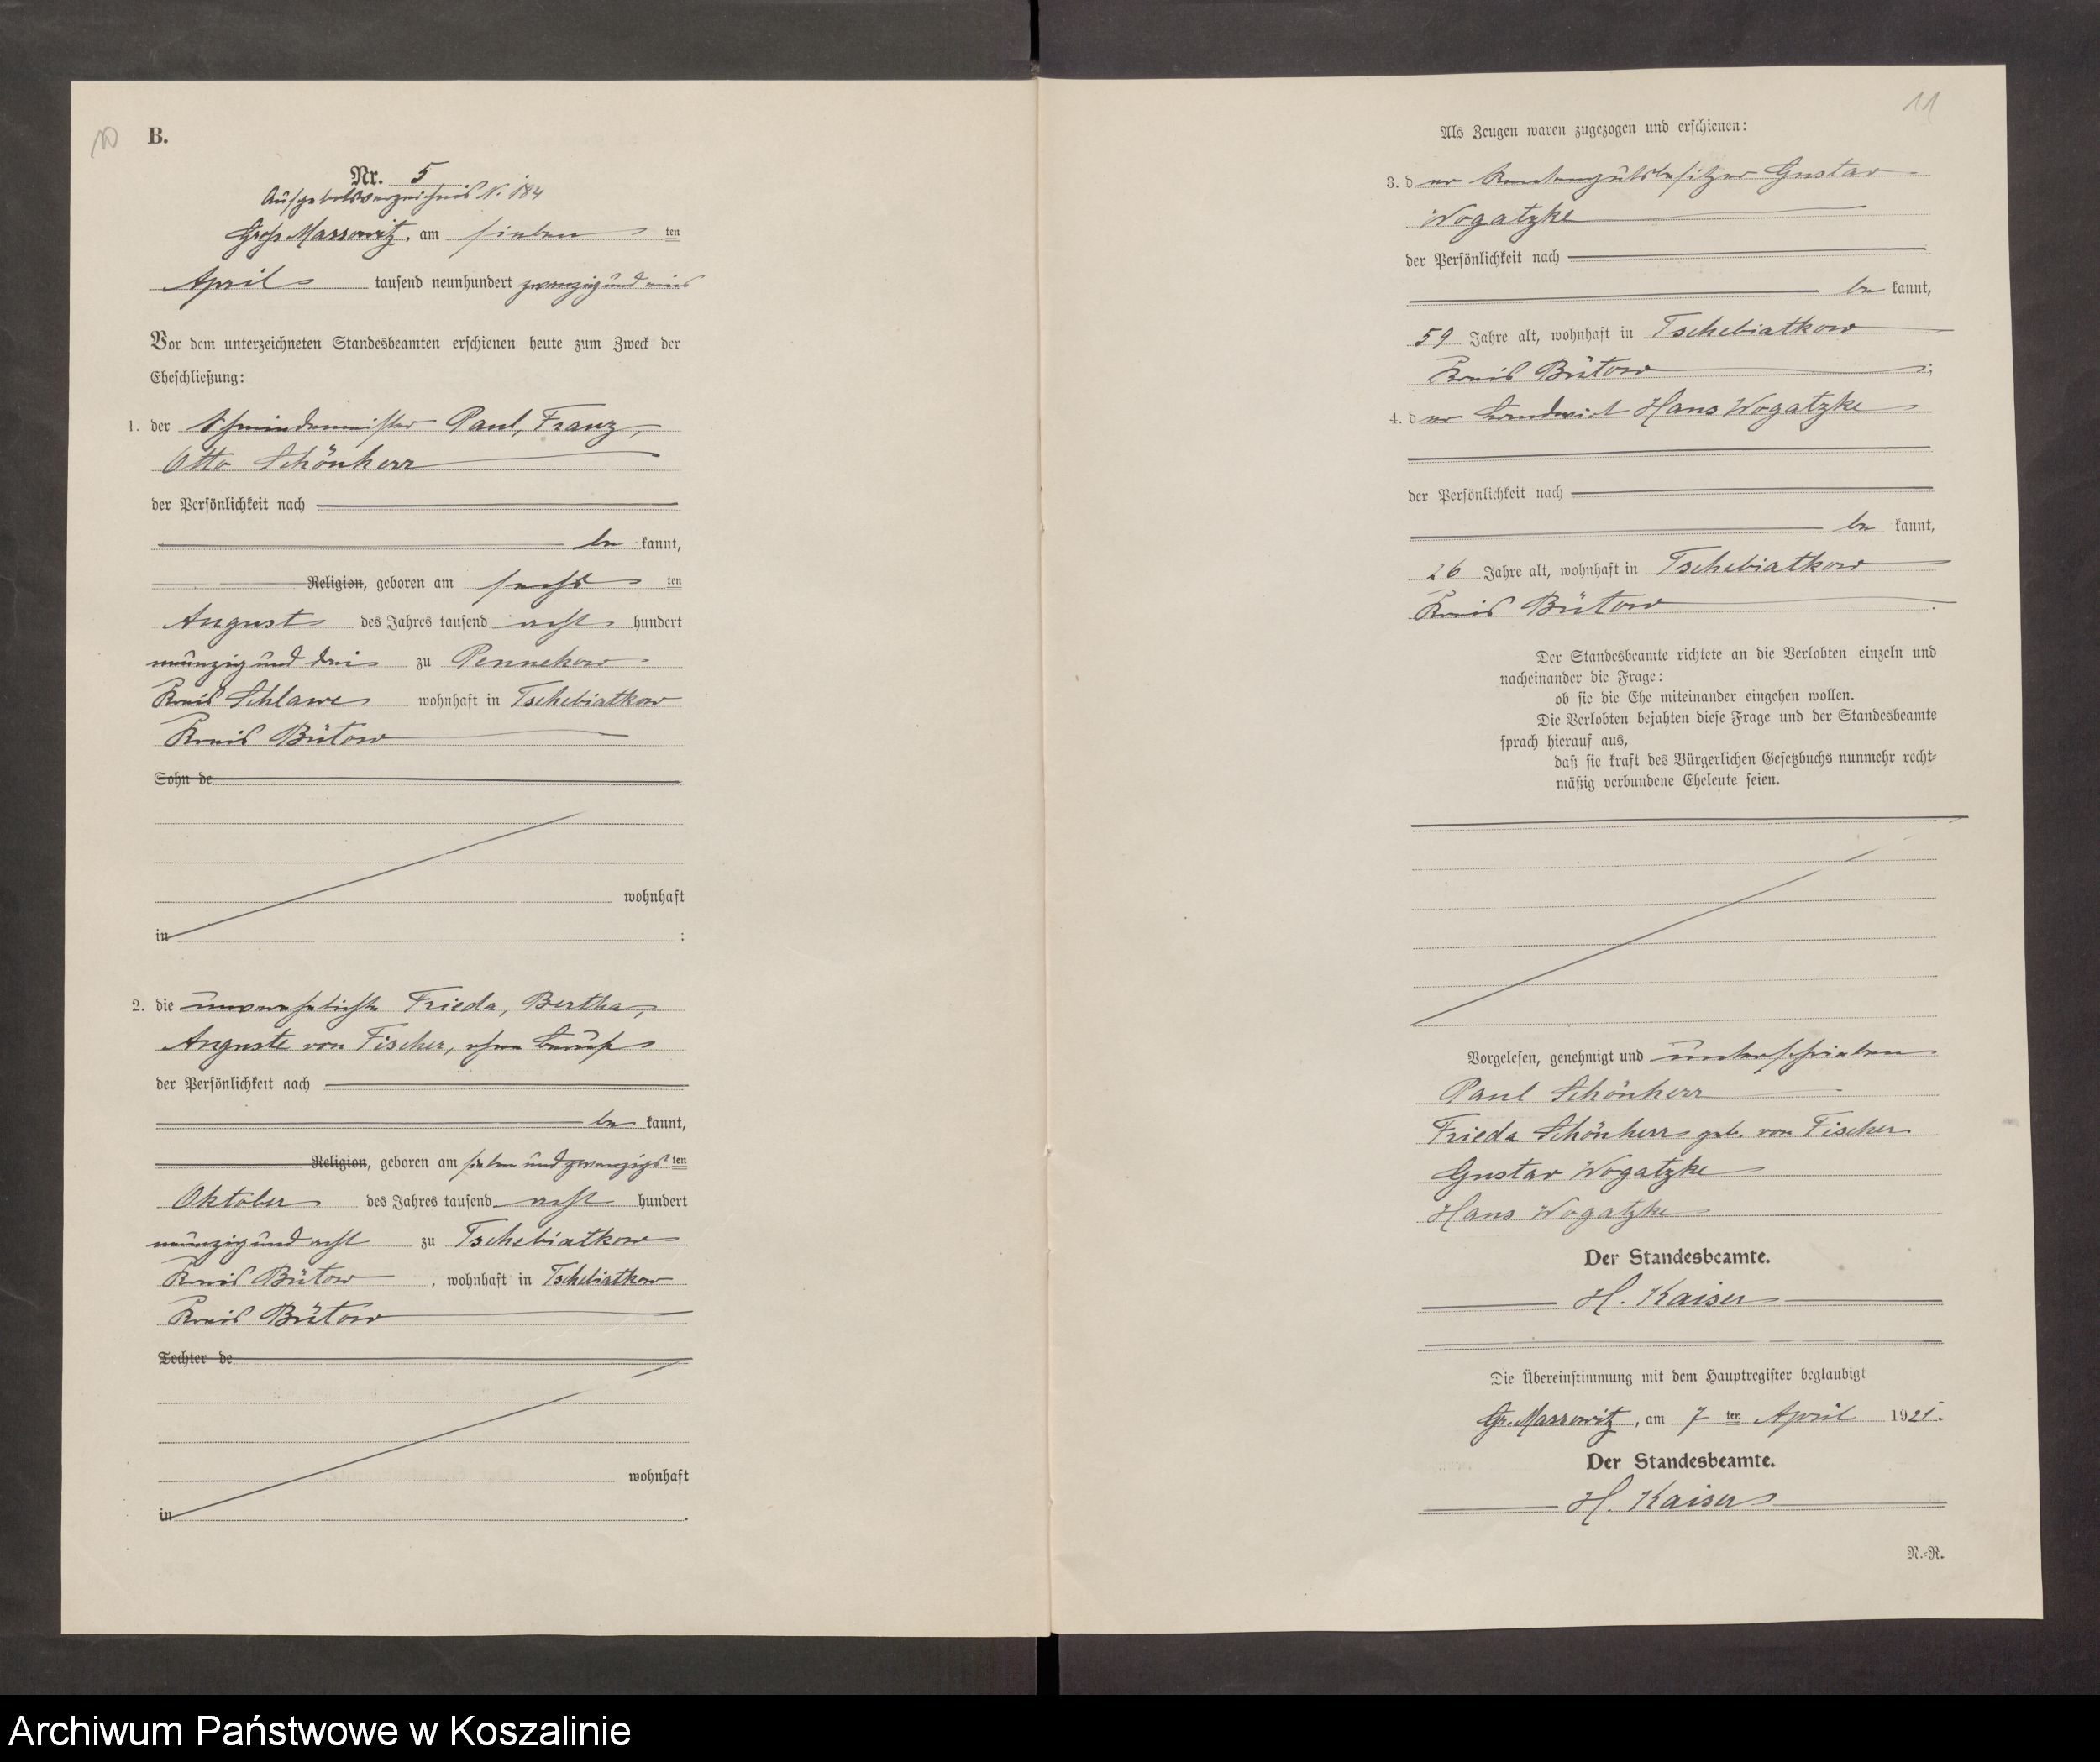 10
B.
Nr. 5
Aufgebotsverzeichnis N. 184
Groß Massowitz, am sieben ten
April tausend neunhundert zwanzig und eins
Vor dem unterzeichneten Standesbeamten erschienen heute zum Zweck der
Eheschließung:
1. der Schmiedemeister Paul, Franz,
Otto Schönherr
der Persönlichkeit nach
be kannt,
Religion, geboren am sechs ten
August des Jahres tausend acht hundert
neunzig und drei zu Pennekow
Kreis Schlawe wohnhaft in Tschebiatkow
Kreis Bütow
Sohn de
wohnhaft
in :
2. die unverehelichte Frieda, Bertha,
Auguste von Fischer, ohne Beruf
der Persönlichkeit nach
be kannt,
Religion, geboren am sieben und zwanzigsten
Oktober des Jahres tausend acht hundert
neunzig und acht zu Tschebiatkow
Kreis Bütow, wohnhaft in Tschebiatkow
Kreis Bütow
Tochter de
wohnhaft
in .
11
Als Zeugen waren zugezogen und erschienen:
3. der Rentengutsbesitzer Gustav
Wogatzke
der Persönlichkeit nach
be kannt,
59 Jahre alt, wohnhaft in Tschebiatkow
Kreis Bütow ;
4. der Landwirt Hans Wogatzke
der Persönlichkeit nach
be kannt,
26 Jahre alt, wohnhaft in Tschebiatkow
Kreis Bütow .
Der Standesbeamte richtete an die Verlobten einzeln und
nacheinander die Frage:
ob sie die Ehe miteinander eingehen wollen.
Die Verlobten bejahten diese Frage und der Standesbeamte
sprach hierauf aus,
daß sie kraft des Bürgerlichen Gesetzbuchs nunmehr recht=
mäßig verbundene Eheleute seien.
Vorgelesen, genehmigt und unterschrieben
Paul Schönherr
Frieda Schönherr geb. von Fischer
Gustav Wogatzke
Hans Wogatzke
Der Standesbeamte.
H. Kaiser
Die Übereinstimmung mit dem Hauptregister beglaubigt
Gr. Massowitz, am 7 ten April 1921.
Der Standesbeamte.
H. Kaiser
N.=R.
Archiwum Państwowe w Koszalinie